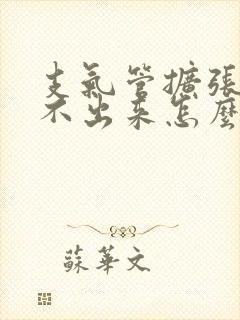 支氣管擴張
不出来怎麼
蘇華文